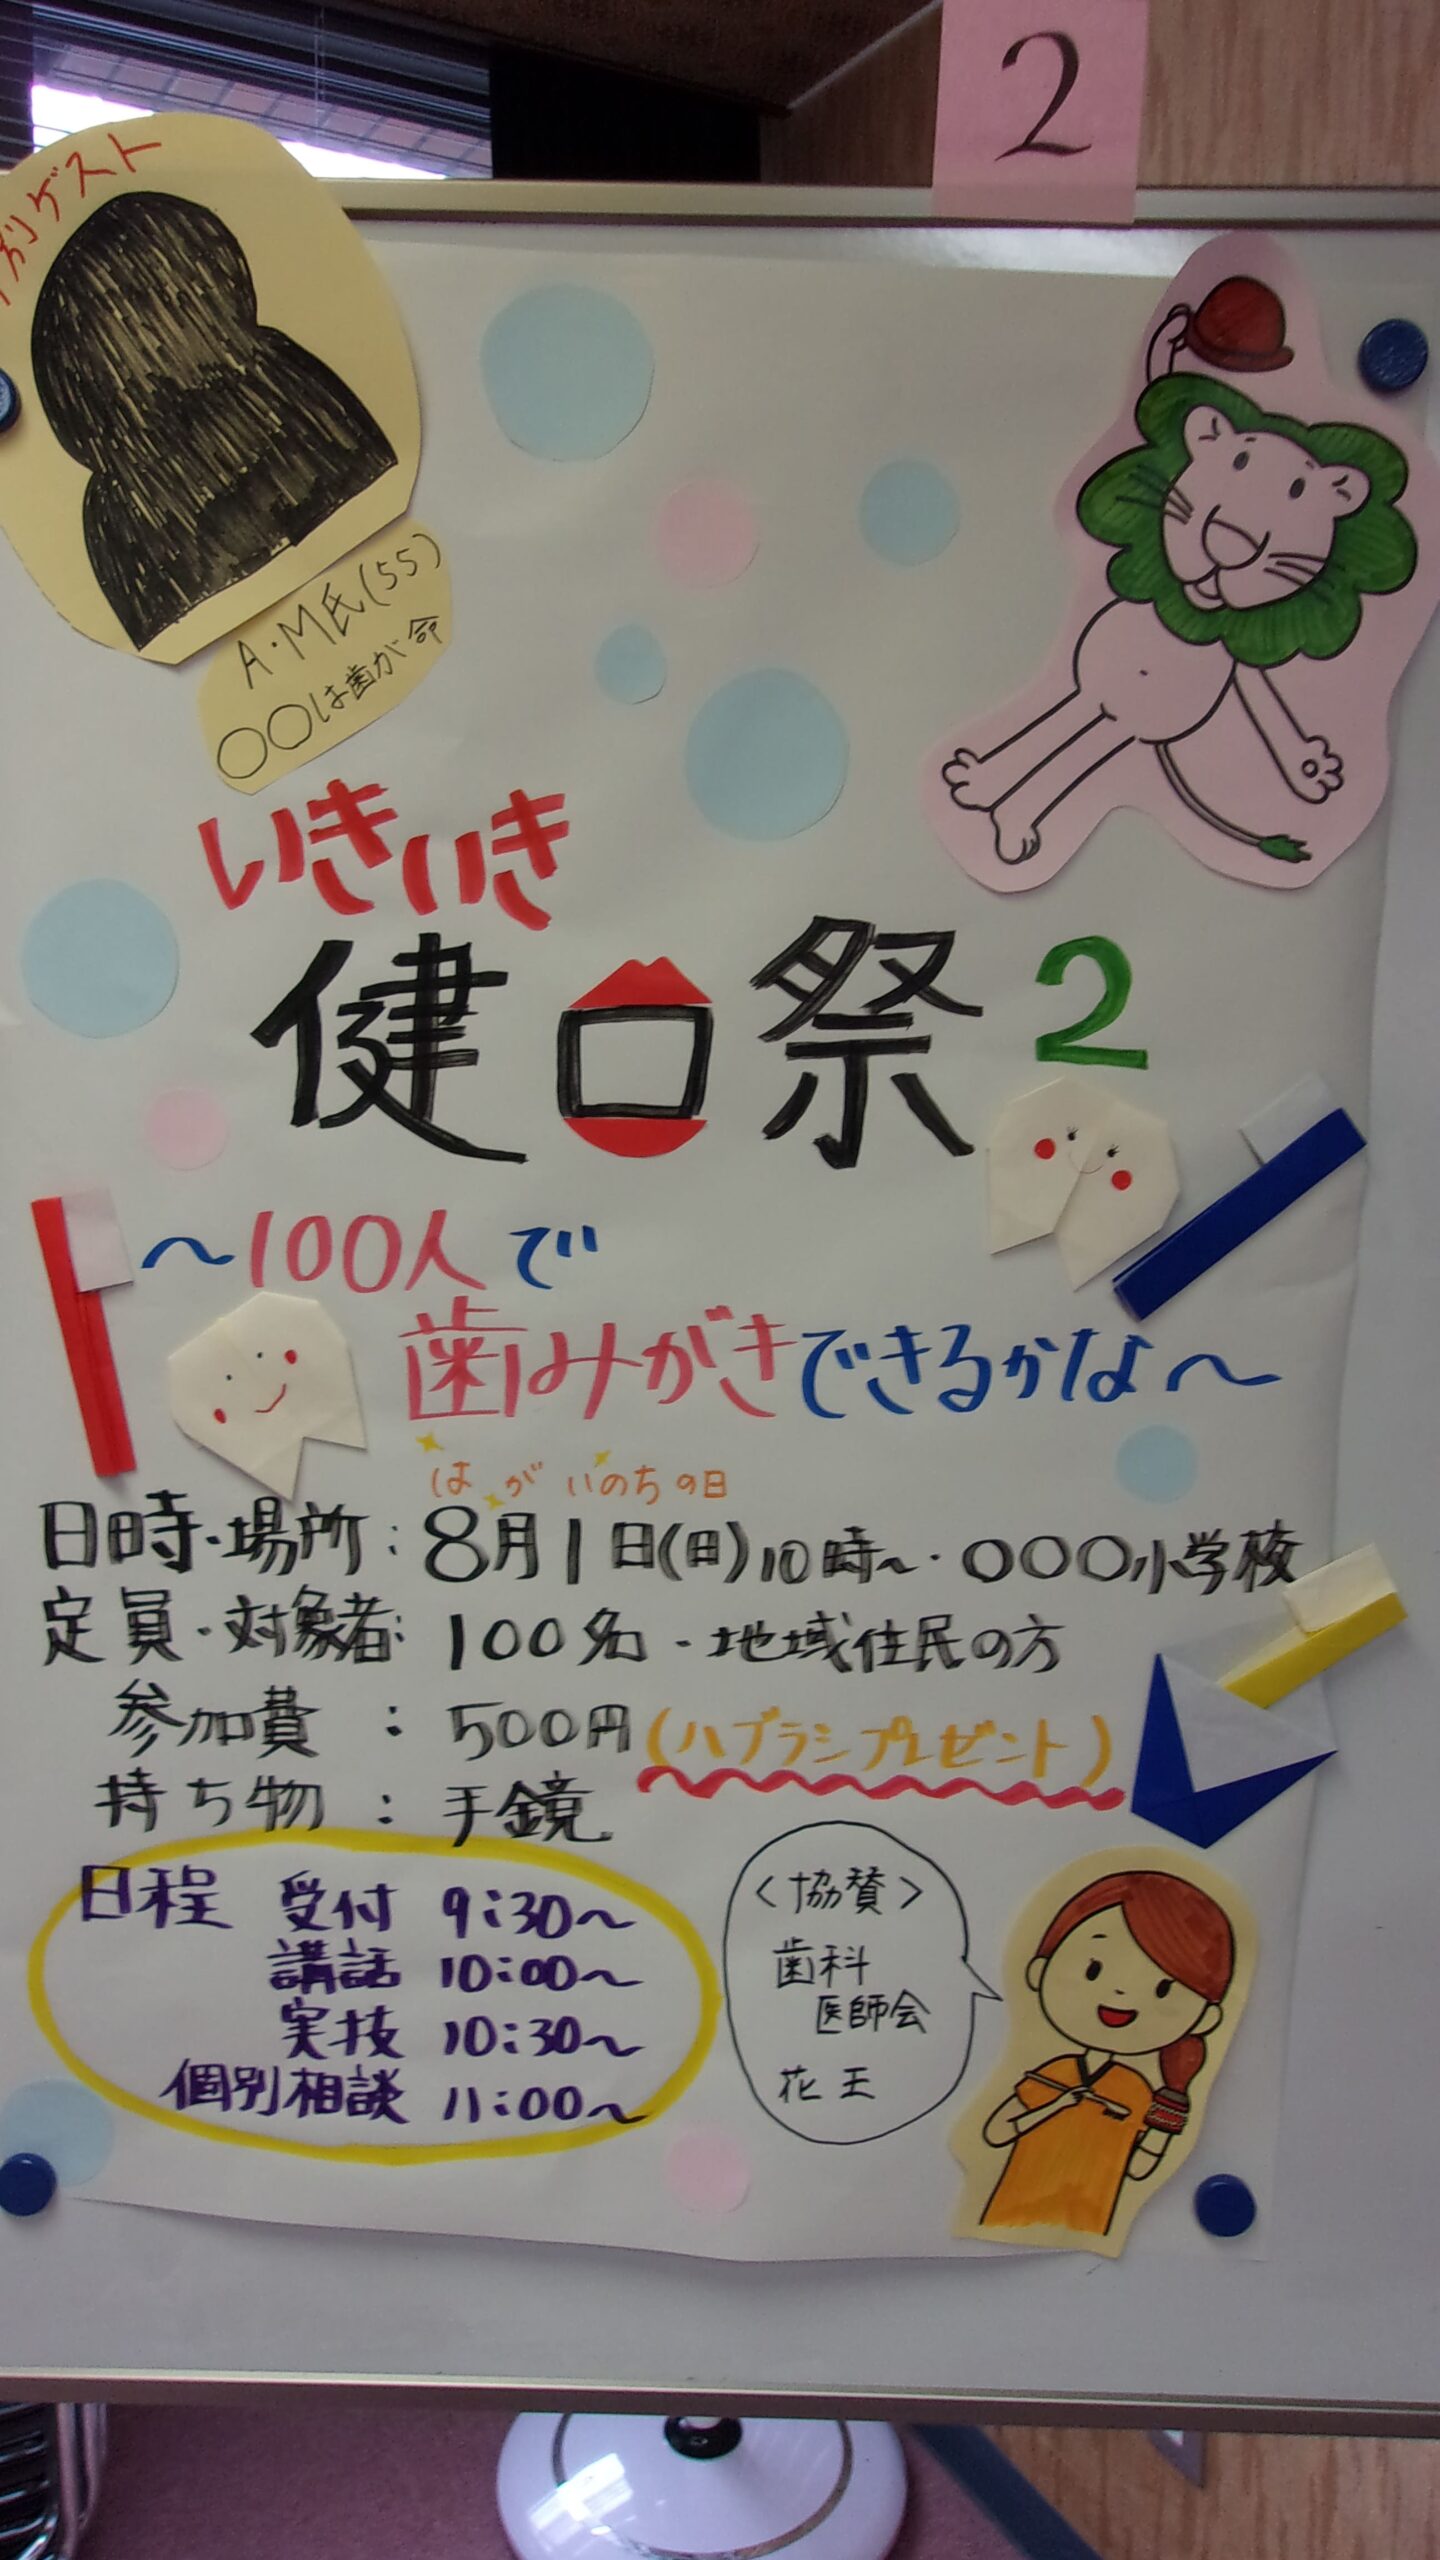 2
別ゲスト
A・M氏(55)
○○は歯が命
いきいき
健口祭2
～100人で
歯みがきできるかな～
は が いのちの日
日時・場所：8月1日(日)10時～・○○○小学校
定員・対象者：100名・地域住民の方
参加費：500円(ハブラシプレゼント)
持ち物：手鏡
日程 受付 9:30～
講話 10:00～
実技 10:30～
個別相談 11:00～
＜協賛＞
歯科
医師会
花王